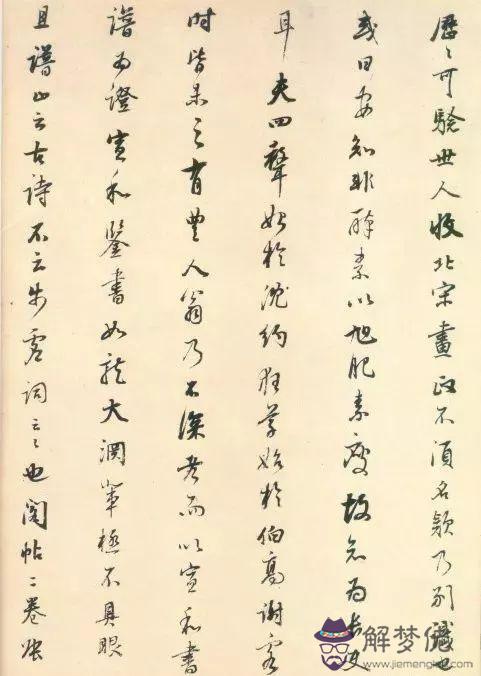 歷〻可驗世人收北宋畫政不須名款乃別識也
或曰安知非醉素以旭肥素瘦故知為長史
耳夫四聲始於沈約狂草始於伯高謝客
時皆未之有豐人翁乃不深考而以宣和書
譜為證宣和鑒書如龍大淵輩極不具眼
且譜止云古詩不云步虛詞云〻也閣帖二卷張
解梦佬
www.jiemenglao.com